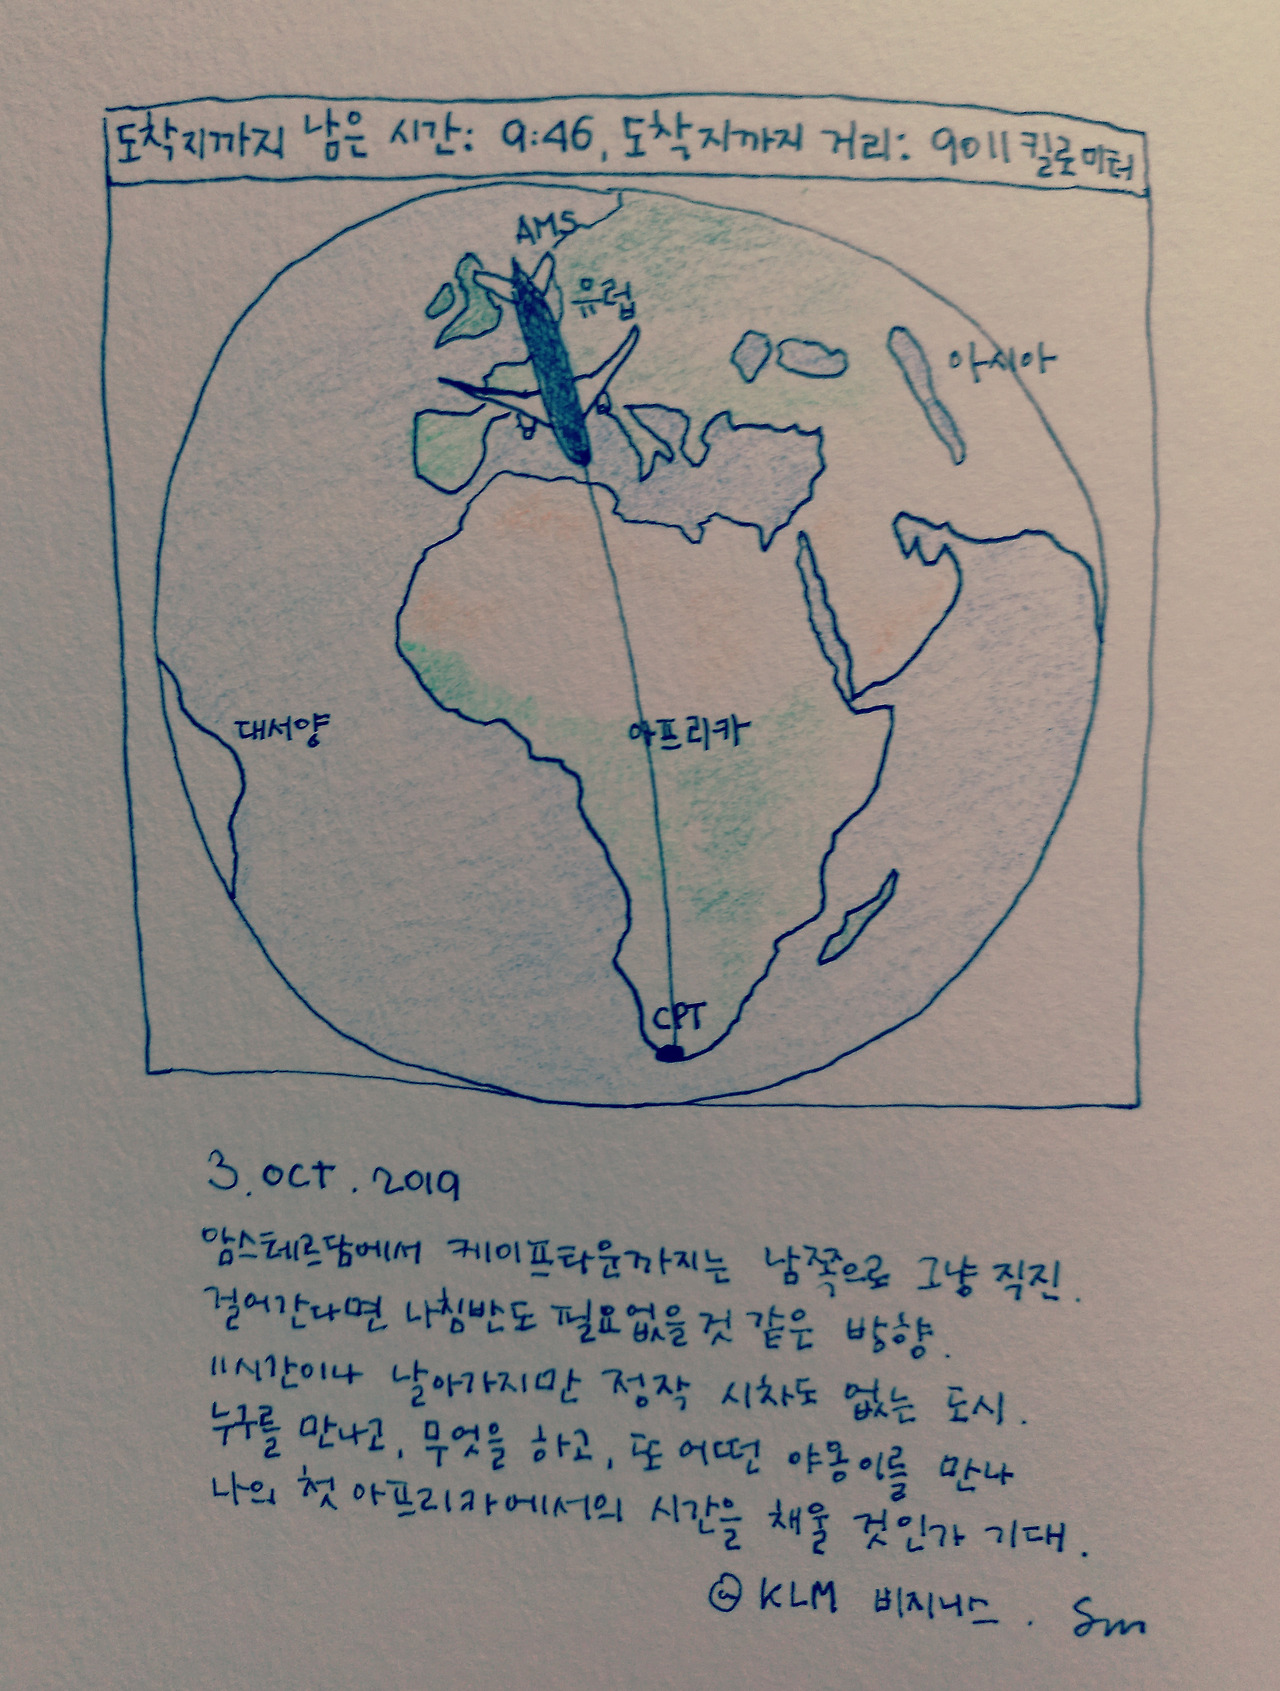 도착지까지 남은 시간: 9:46, 도착지까지 거리: 9011 킬로미터
AMS
유럽
아시아
대서양
아프리카
CPT
3. OCT. 2019
암스테르담에서 케이프타운까지는 남쪽으로 그냥 직진.
걸어간다면 나침반도 필요없을것 같은 방향.
11시간이나 날아가지만 정작 시차도 없는 도시.
누구를 만나고, 무엇을 하고, 또 어떤 야옹이를 만나
나의 첫 아프리카에서의 시간을 채울 것인가 기대.
@ KLM 비지니스. Sm